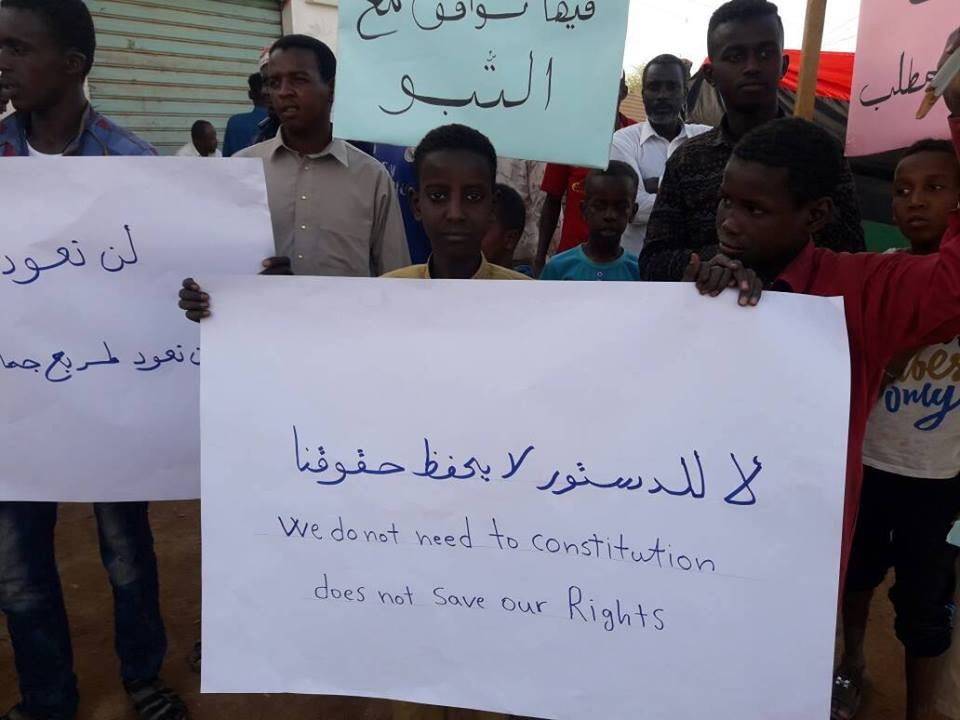 فيها توافق مع
التبو
مطلب
لن نعود
نعود لمربع
لا للدستور لا يحفظ حقوقنا
We do not need to constitution
does not save our Rights
only